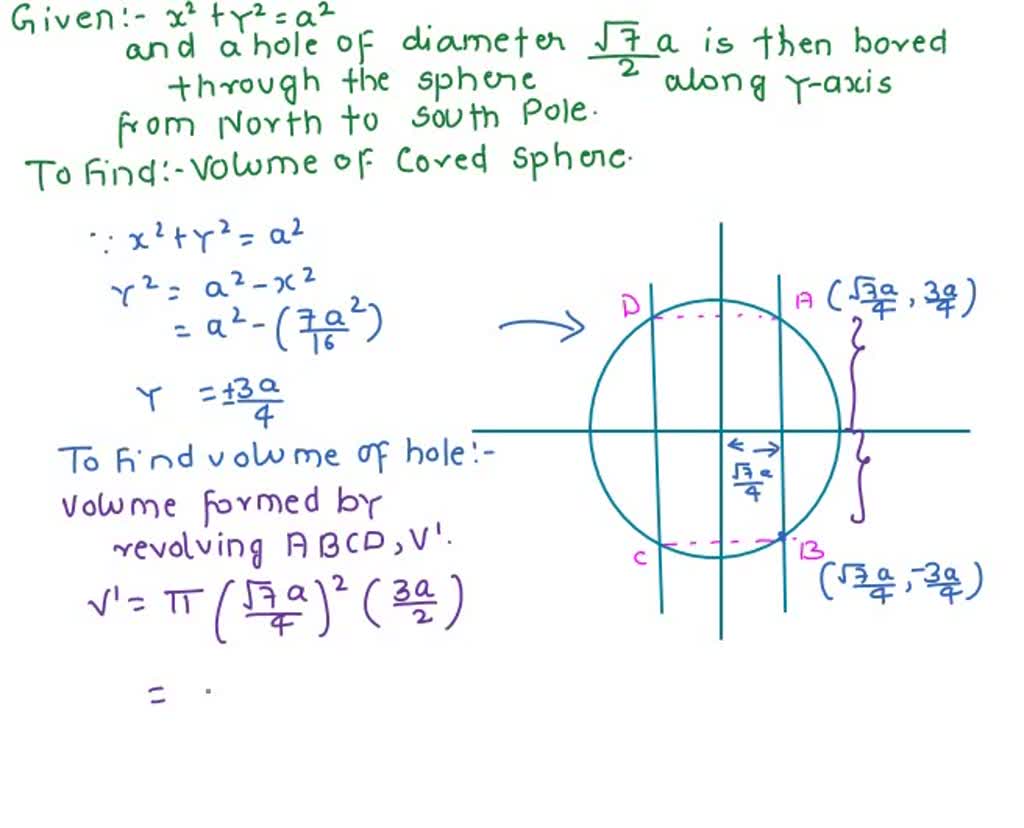 Given:- x² + Y² = a²
and a hole of diameter √7/2 a is then bored
through the sphere along Y-axis
from North to south Pole.
To Find:- Volume of Cored sphere.
∵ x² + Y² = a²
Y² = a² - x²
= a² - (7a²/16)
Y = ±3a/4
To Find volume of hole:-
Volume formed by
revolving ABCD, V'.
V' = π (√7a/4)² (3a/2)
= .
D
A (√7a/4, 3a/4)
√7a/4
C
B
(√7a/4, -3a/4)